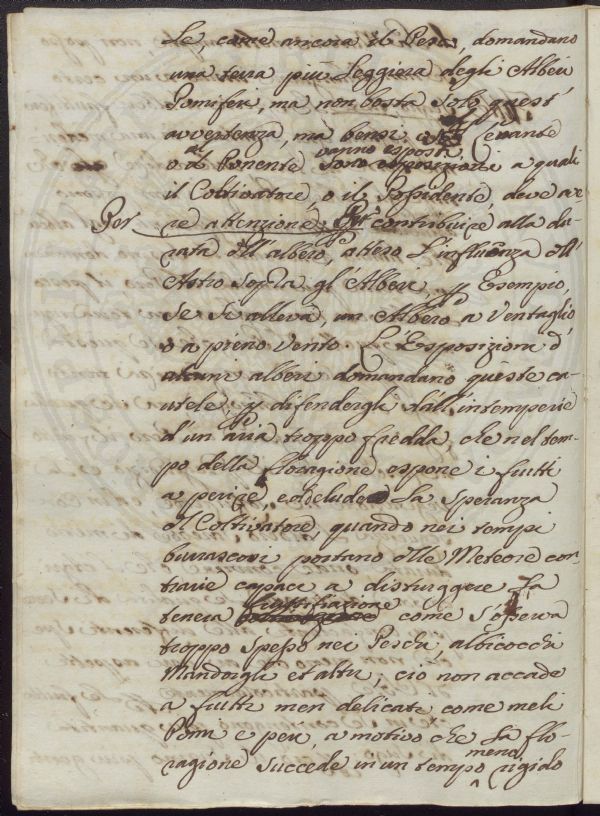 Le, come ancora il Pesco, domandano
una terra più Leggiera degli Alberi
Pomiferi, ma non basta solo quest'
avvertenza, ma bensì Levante
o al Ponente vanno esposti, a quali
il Coltivatore, o il Possidente, deve ave-
re attenzione Per contribuire alla du-
rata dell'albero, atteso L'influenza dell'
Astro sopra gl'Alberi. p Esempio,
se si alleva, un Albero a Ventaglio
o a pieno vento. L'Esposizioni d'
alcuni alberi domandano queste ca-
utele, p difendergli dall'intemperie
d'un'aria troppo fredda, che nel tem-
po della floragione espone i frutti
a perire, e delude La Speranza
del Coltivatore, quando nei tempi
burrascosi portano delle Meteore con-
trarie capaci a distruggere La
tenera fruttifiazione come s'osserva
troppo spesso nei Peschi, albicocchi
Mandorli et altri; ciò non accade
a frutti men delicati come meli
Pomi e peri, a motivo che La flo-
ragione succede in un tempo meno rigido